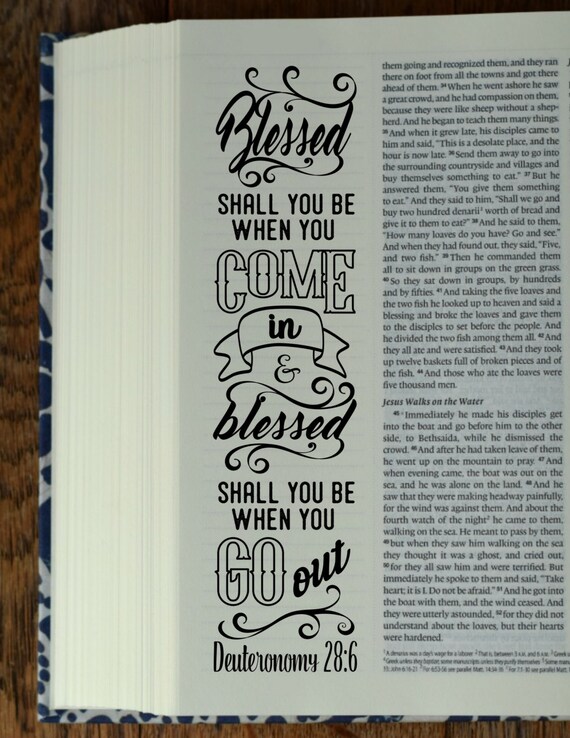 Blessed
SHALL YOU BE
WHEN YOU
COME
in
&
blessed
SHALL YOU BE
WHEN YOU
GO out
Deuteronomy 28:6
them going and recognized them, and they ran
there on foot from all the towns and got there
ahead of them. 34 When he went ashore he saw
a great crowd, and he had compassion on them,
because they were like sheep without a shep-
herd. And he began to teach them many things.
35 And when it grew late, his disciples came to
him and said, “This is a desolate place, and the
hour is now late. 36 Send them away to go into
the surrounding countryside and villages and
buy themselves something to eat.” 37 But he
answered them, “You give them something
to eat.” And they said to him, “Shall we go and
buy two hundred denarii1 worth of bread and
give it to them to eat?” 38 And he said to them,
“How many loaves do you have? Go and see.”
And when they had found out, they said, “Five,
and two fish.” 39 Then he commanded them
all to sit down in groups on the green grass.
40 So they sat down in groups, by hundreds
and by fifties. 41 And taking the five loaves and
the two fish he looked up to heaven and said a
blessing and broke the loaves and gave them
to the disciples to set before the people. And
he divided the two fish among them all. 42 And
they all ate and were satisfied. 43 And they took
up twelve baskets full of broken pieces and of
the fish. 44 And those who ate the loaves were
five thousand men.
Jesus Walks on the Water
45 Immediately he made his disciples get
into the boat and go before him to the other
side, to Bethsaida, while he dismissed the
crowd. 46 And after he had taken leave of them,
he went up on the mountain to pray. 47 And
when evening came, the boat was out on the
sea, and he was alone on the land. 48 And he
saw that they were making headway painfully,
for the wind was against them. And about the
fourth watch of the night2 he came to them,
walking on the sea. He meant to pass by them,
49 but when they saw him walking on the sea
they thought it was a ghost, and cried out,
50 for they all saw him and were terrified. But
immediately he spoke to them and said, “Take
heart; it is I. Do not be afraid.” 51 And he got into
the boat with them, and the wind ceased. And
they were utterly astounded, 52 for they did not
understand about the loaves, but their hearts
were hardened.
1 A denarius was a day's wage for a laborer 2 That is, between 3 A.M. and 6 A.M.